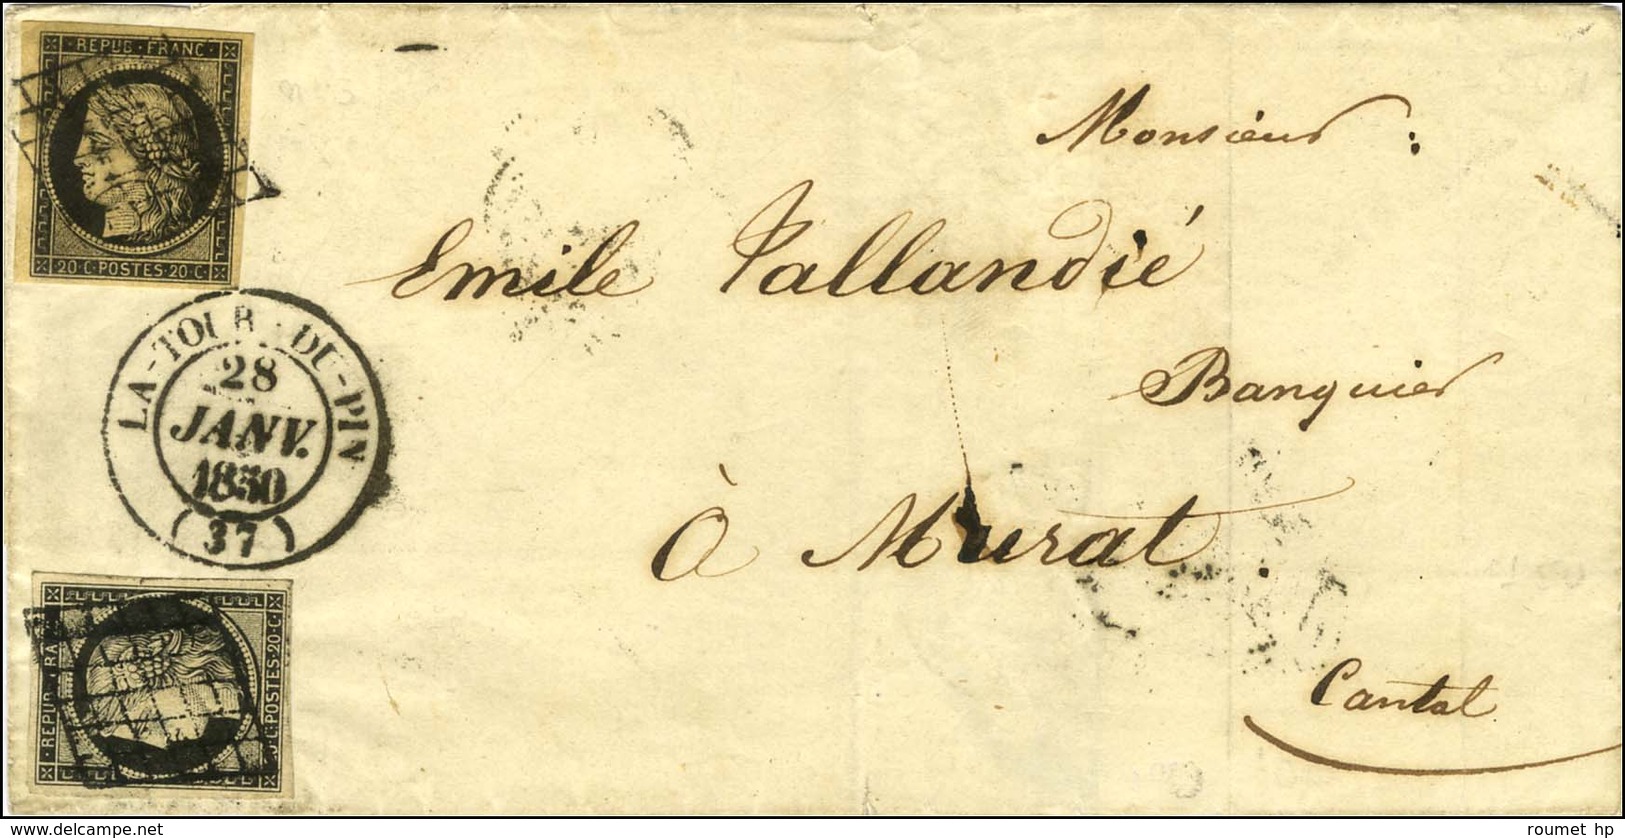 REPUB·FRANC·
20·C·POSTES·20·C·
LA-TOUR-DU-PIN
28
JANV.
1850
(37)
REPUB
20·C·POSTES·20·C·
Monsieur :
Emile Tallandié
Banquier
à Murat.
Cantal
www.delcampe.net
roumet hp